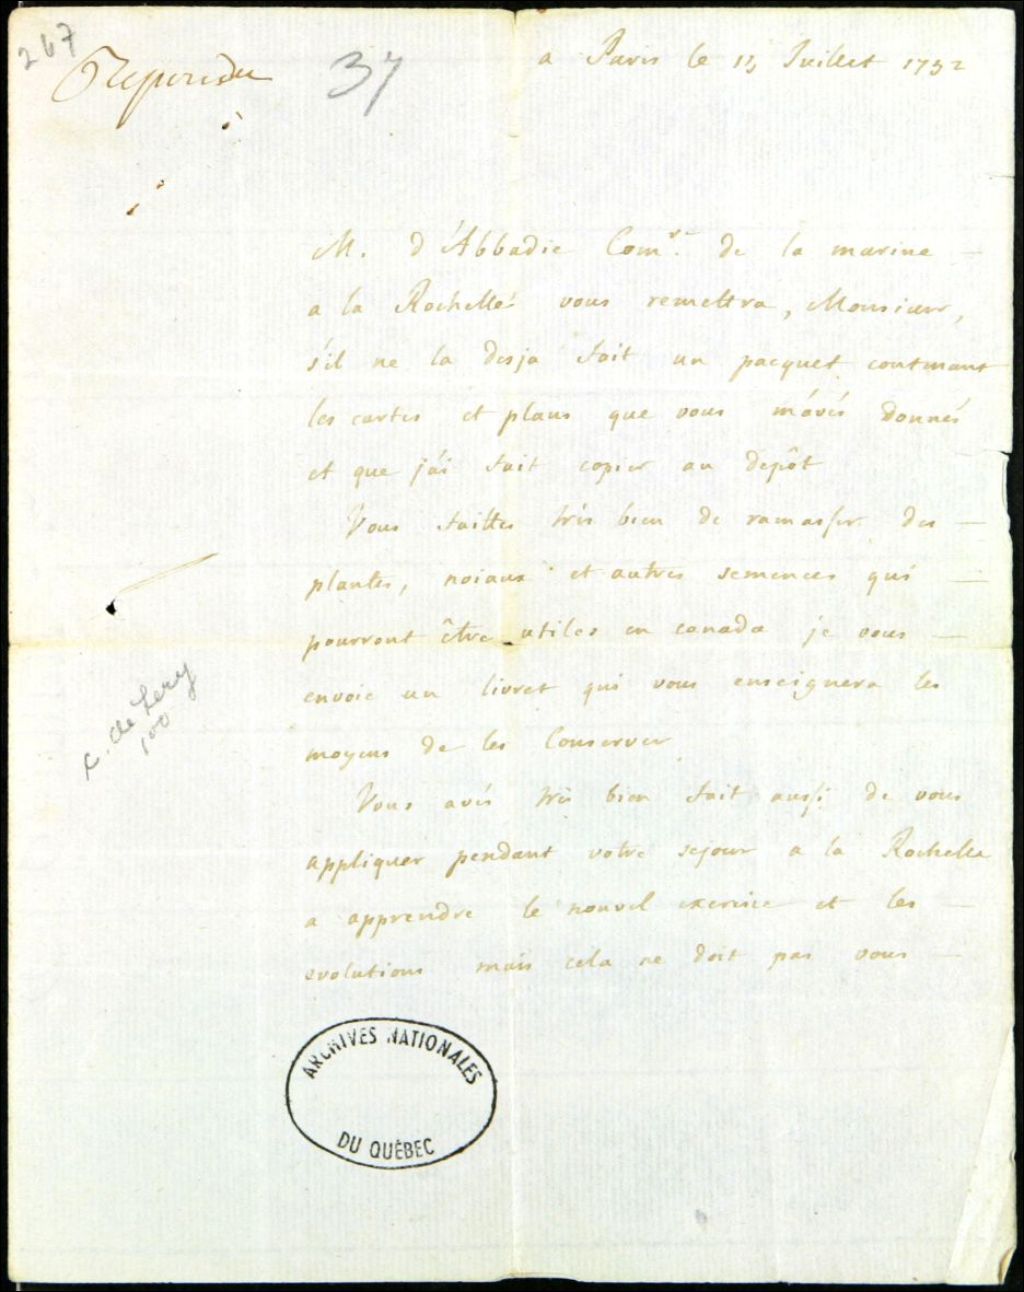 247
Repondu
37
a Paris le 15 Juillet 1752
M. d'Abbadie Com.r de la marine
a la Rochelle vous remettra, Monsieur,
s'il ne la desja fait un pacquet contenant
les cartes et plans que vous m'avés donnés
et que j'ai fait copier au depôt
Vous faittes très bien de ramasser des
plantes, noiaux et autres semences qui
pourront être utiles en canada je vous
envoie un livret qui vous enseignera les
moyens de les Conserver
Vous avés très bien fait aussi de vous
appliquer pendant votre sejour a la Rochelle
a apprendre le nouvel exercice et les
evolutions mais cela ne doit pas vous
de Lery
100
ARCHIVES NATIONALES
DU QUÉBEC